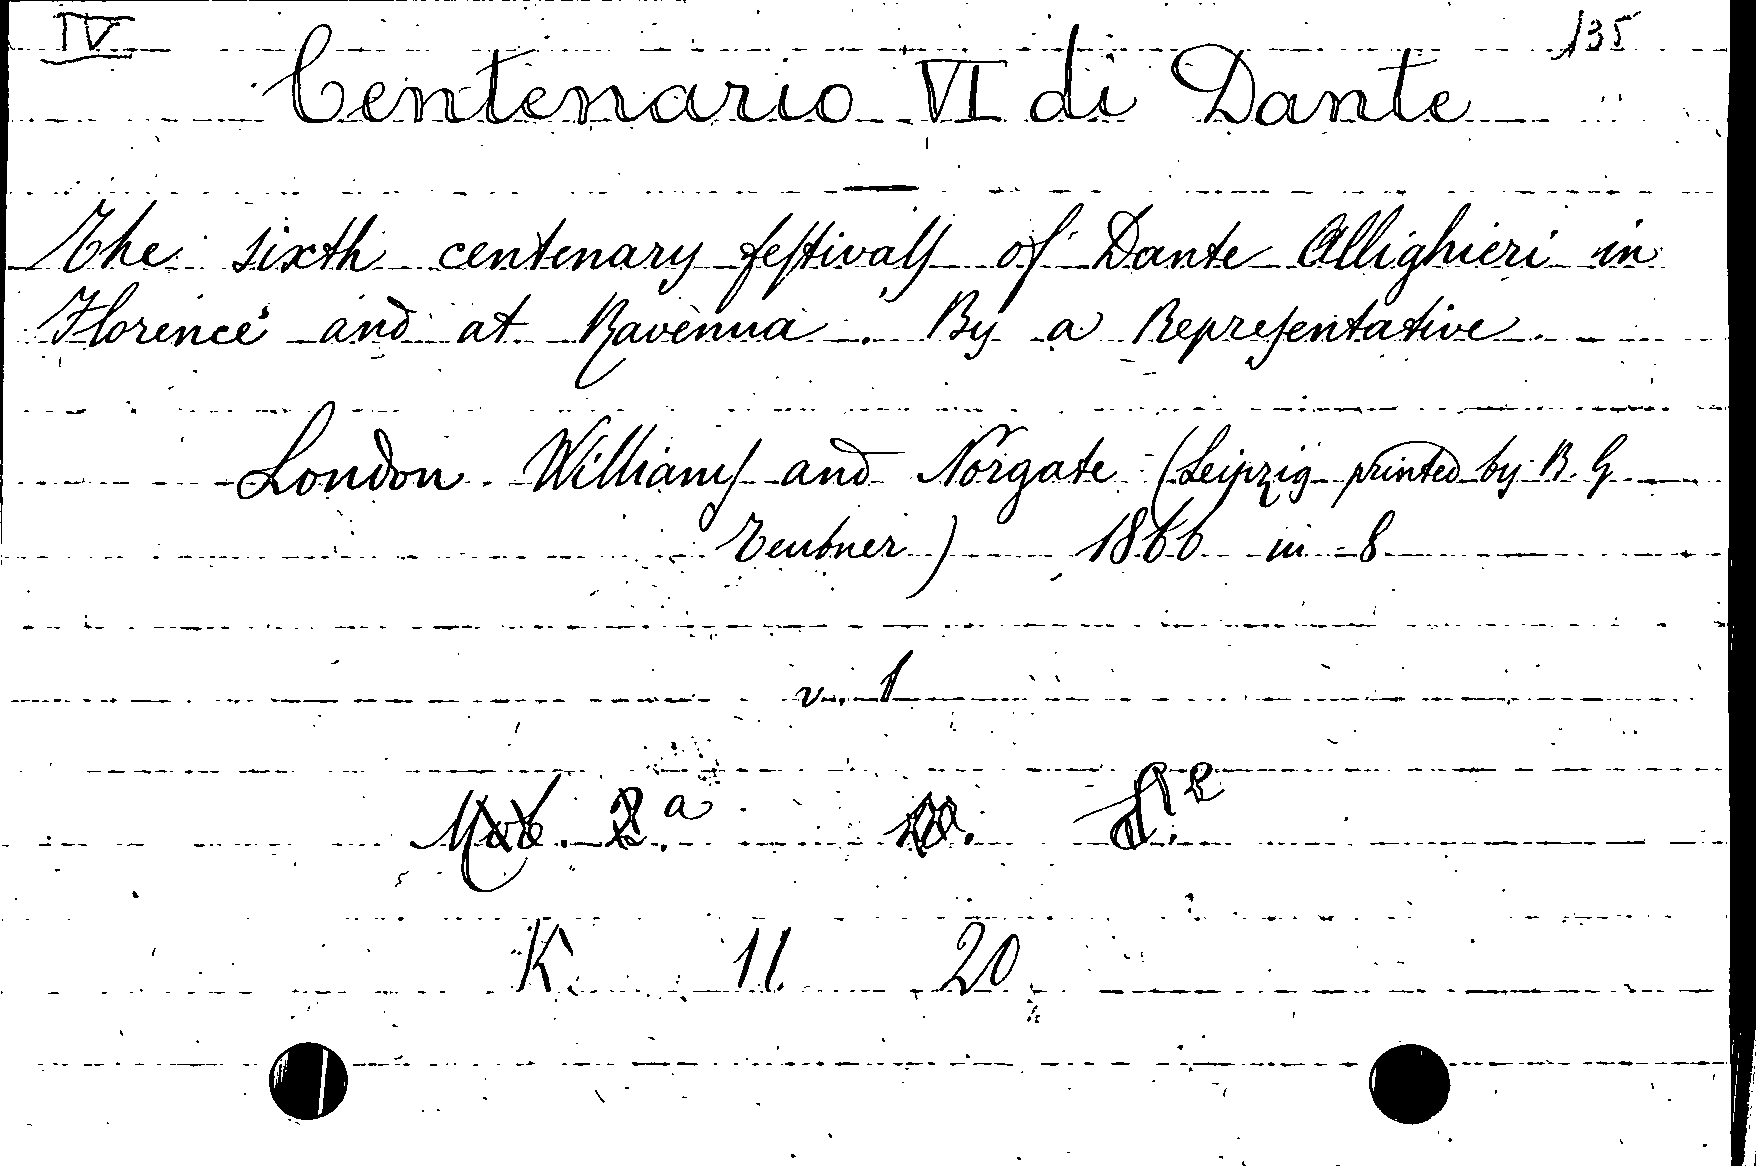 IV 135
Centenario VI di Dante
The sixth centenary festivals of Dante Allighieri in
Florence and at Ravenna. By a Representative.
London. Williams and Norgate (Leipzig printed by B. G
Teubner) 1866 in 8
v. 1
2.a
K. 11. 20